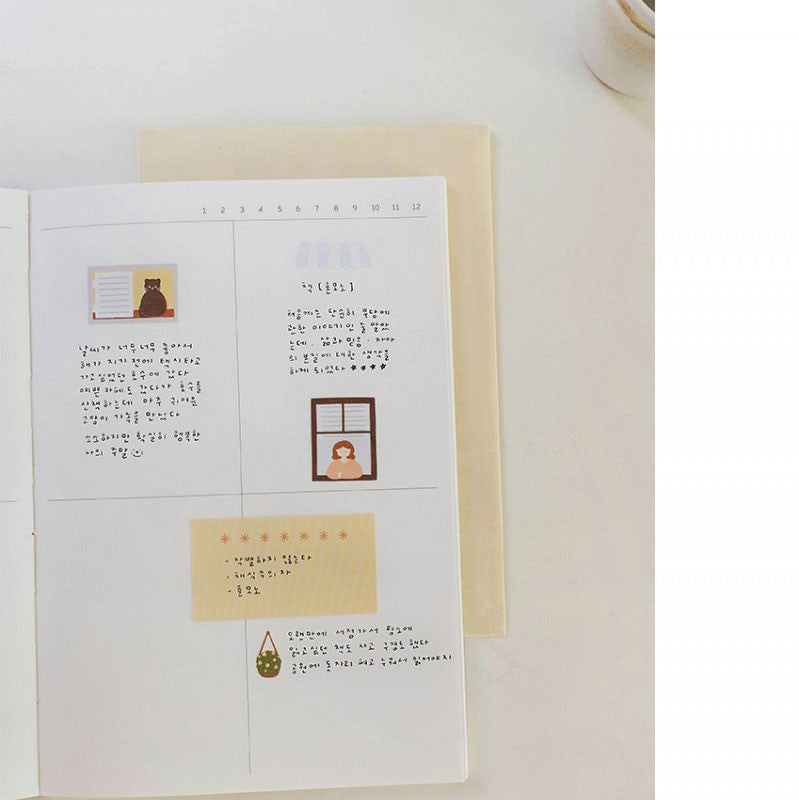 1 2 3 4 5 6 7 8 9 10 11 12
날씨가 너무너무 좋아서
해가 지기 전에 택시타고
가고싶었던 호수에 갔다
예쁜 카페도 갔다가 호수를
산책하는데 아주 귀여운
고양이 가족을 만났다
소소하지만 확실히 행복한
나의 주말
책 [흰모노]
처음에는 단순히 무당에
관한 이야기인 줄 알았
는데. 삶과 믿음. 자아
의 본질에 대한 생각을
하게 되었다 ★★★★
- 작별하지 않는다
- 채식주의자
- 혼모노
오랜만에 서점가서 평소에
읽고싶던 책도 사고 구경도 했다
공원에 돗자리 펴고 누워서 읽어야지